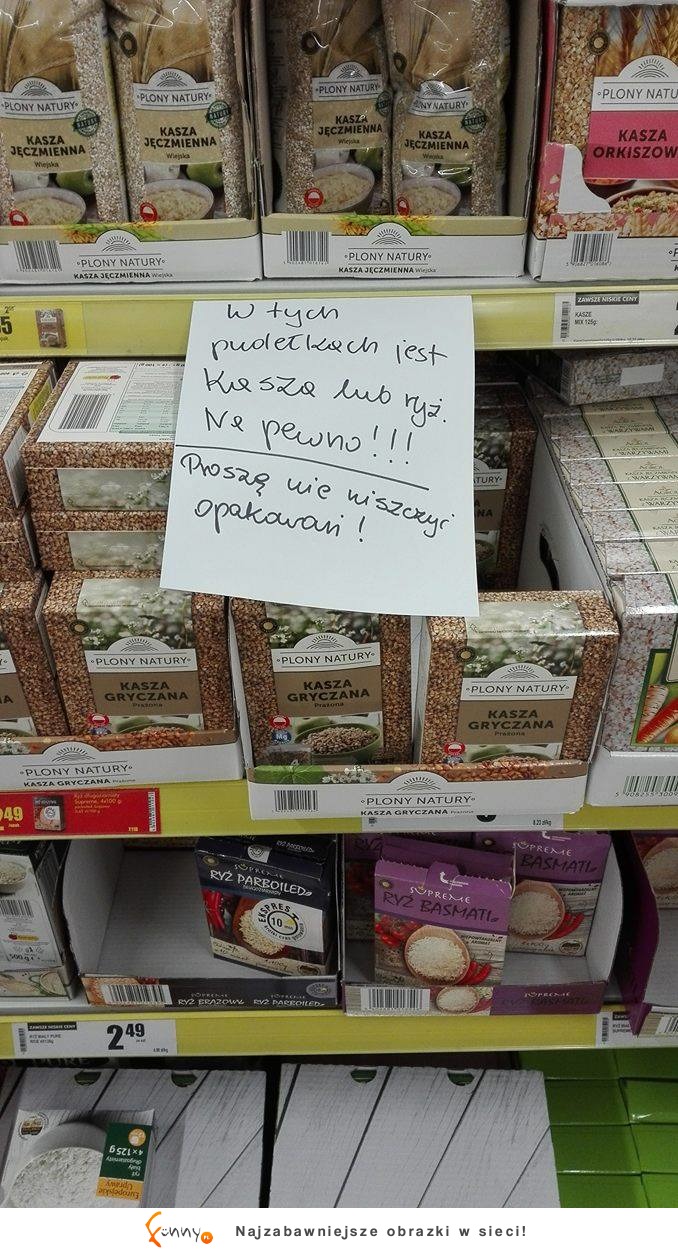 PLONY NATURY
KASZA
JĘCZMIENNA
Wiejska
PLONY NATURY
KASZA
JĘCZMIENNA
Wiejska
PLONY NATURY
KASZA
JĘCZMIENNA
PLONY NATURY
KASZA
JĘCZMIENNA
Wiejska
PLONY NATU
KASZA
ORKISZOW
PLONY NATURY
KASZA JĘCZMIENNA Wiejska
PLONY NATURY
KASZA JĘCZMIENNA Wiejska
ZAWSZE NISKIE CENY
KASZE
MIX 125g:
W tych
pudełkach jest
Kasza lub ryż.
Na pewno!!!
Proszę nie niszczyć
opakowań!
PLONY NATURY
KASZA
GRYCZANA
Prażona
PLONY NATURY
KASZA
GRYCZANA
Prażona
PLONY NATURY
KASZA
GRYCZANA
Prażona
PLONY NATURY
KASZA GRYCZANA Prażona
PLONY NATURY
KASZA GRYCZANA Prażona
49
Ryż długoziarnisty
Supreme, 4x100 g
SUPREME
RYŻ PARBOILED
EKSPRES
10
SUPREME
RYŻ BASMATI
SUPREME
BASMATI
500 g e
SUPREME
RYŻ BRĄZOWY
SUPREME
RYŻ PARBOILED
SUPREME
RYŻ BASMATI
ZAWSZE NISKIE CENY
2 49
ryż
biały
długoziarnisty
4×125g
Europejskie
Uprawy
funny.pl Najzabawniejsze obrazki w sieci!